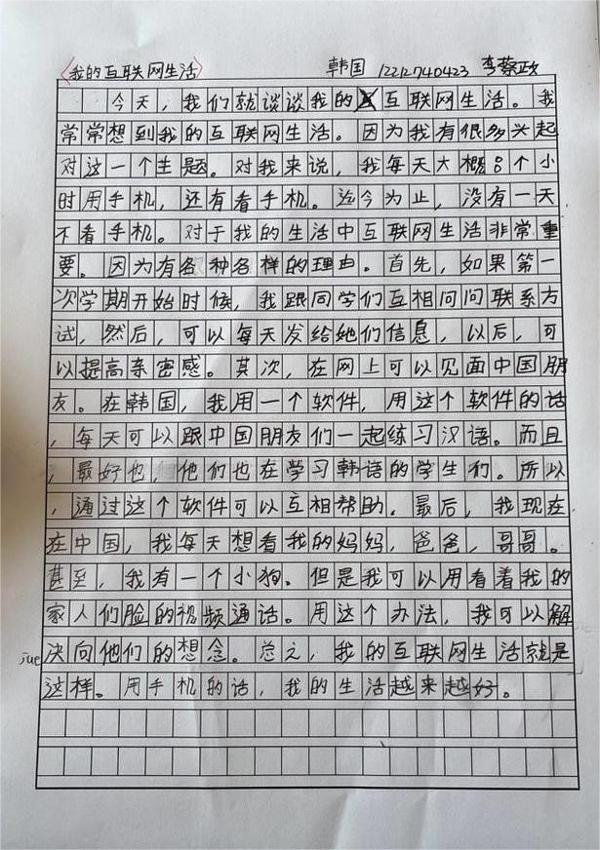 《我的互联网生活》 韩国 12212740423 李蔡政
今天，我们就谈谈我的互联网生活。我
常常想到我的互联网生活。因为我有很多兴起
对这一个主题。对我来说，我每天大概8个小
时用手机，还有看手机。迄今为止，没有一天
不看手机。对于我的生活中互联网生活非常重
要。因为有各种各样的理由。首先，如果第一
次学期开始时候，我跟同学们互相问问联系方
试，然后，可以每天发给她们信息，以后，可
以提高亲密感。其次，在网上可以见面中国朋
友。在韩国，我用一个软件，用这个软件的话
，每天可以跟中国朋友们一起练习汉语。而且
，最好也，他们也在学习韩语的学生们。所以
，通过这个软件可以互相帮助。最后，我现在
在中国，我每天想看我的妈妈，爸爸，哥哥。
甚至，我有一个小狗。但是我可以用看着我的
家人们脸的视频通话。用这个办法，我可以解
jue 决向他们的想念。总之，我的互联网生活就是
这样。用手机的话，我的生活越来越好。